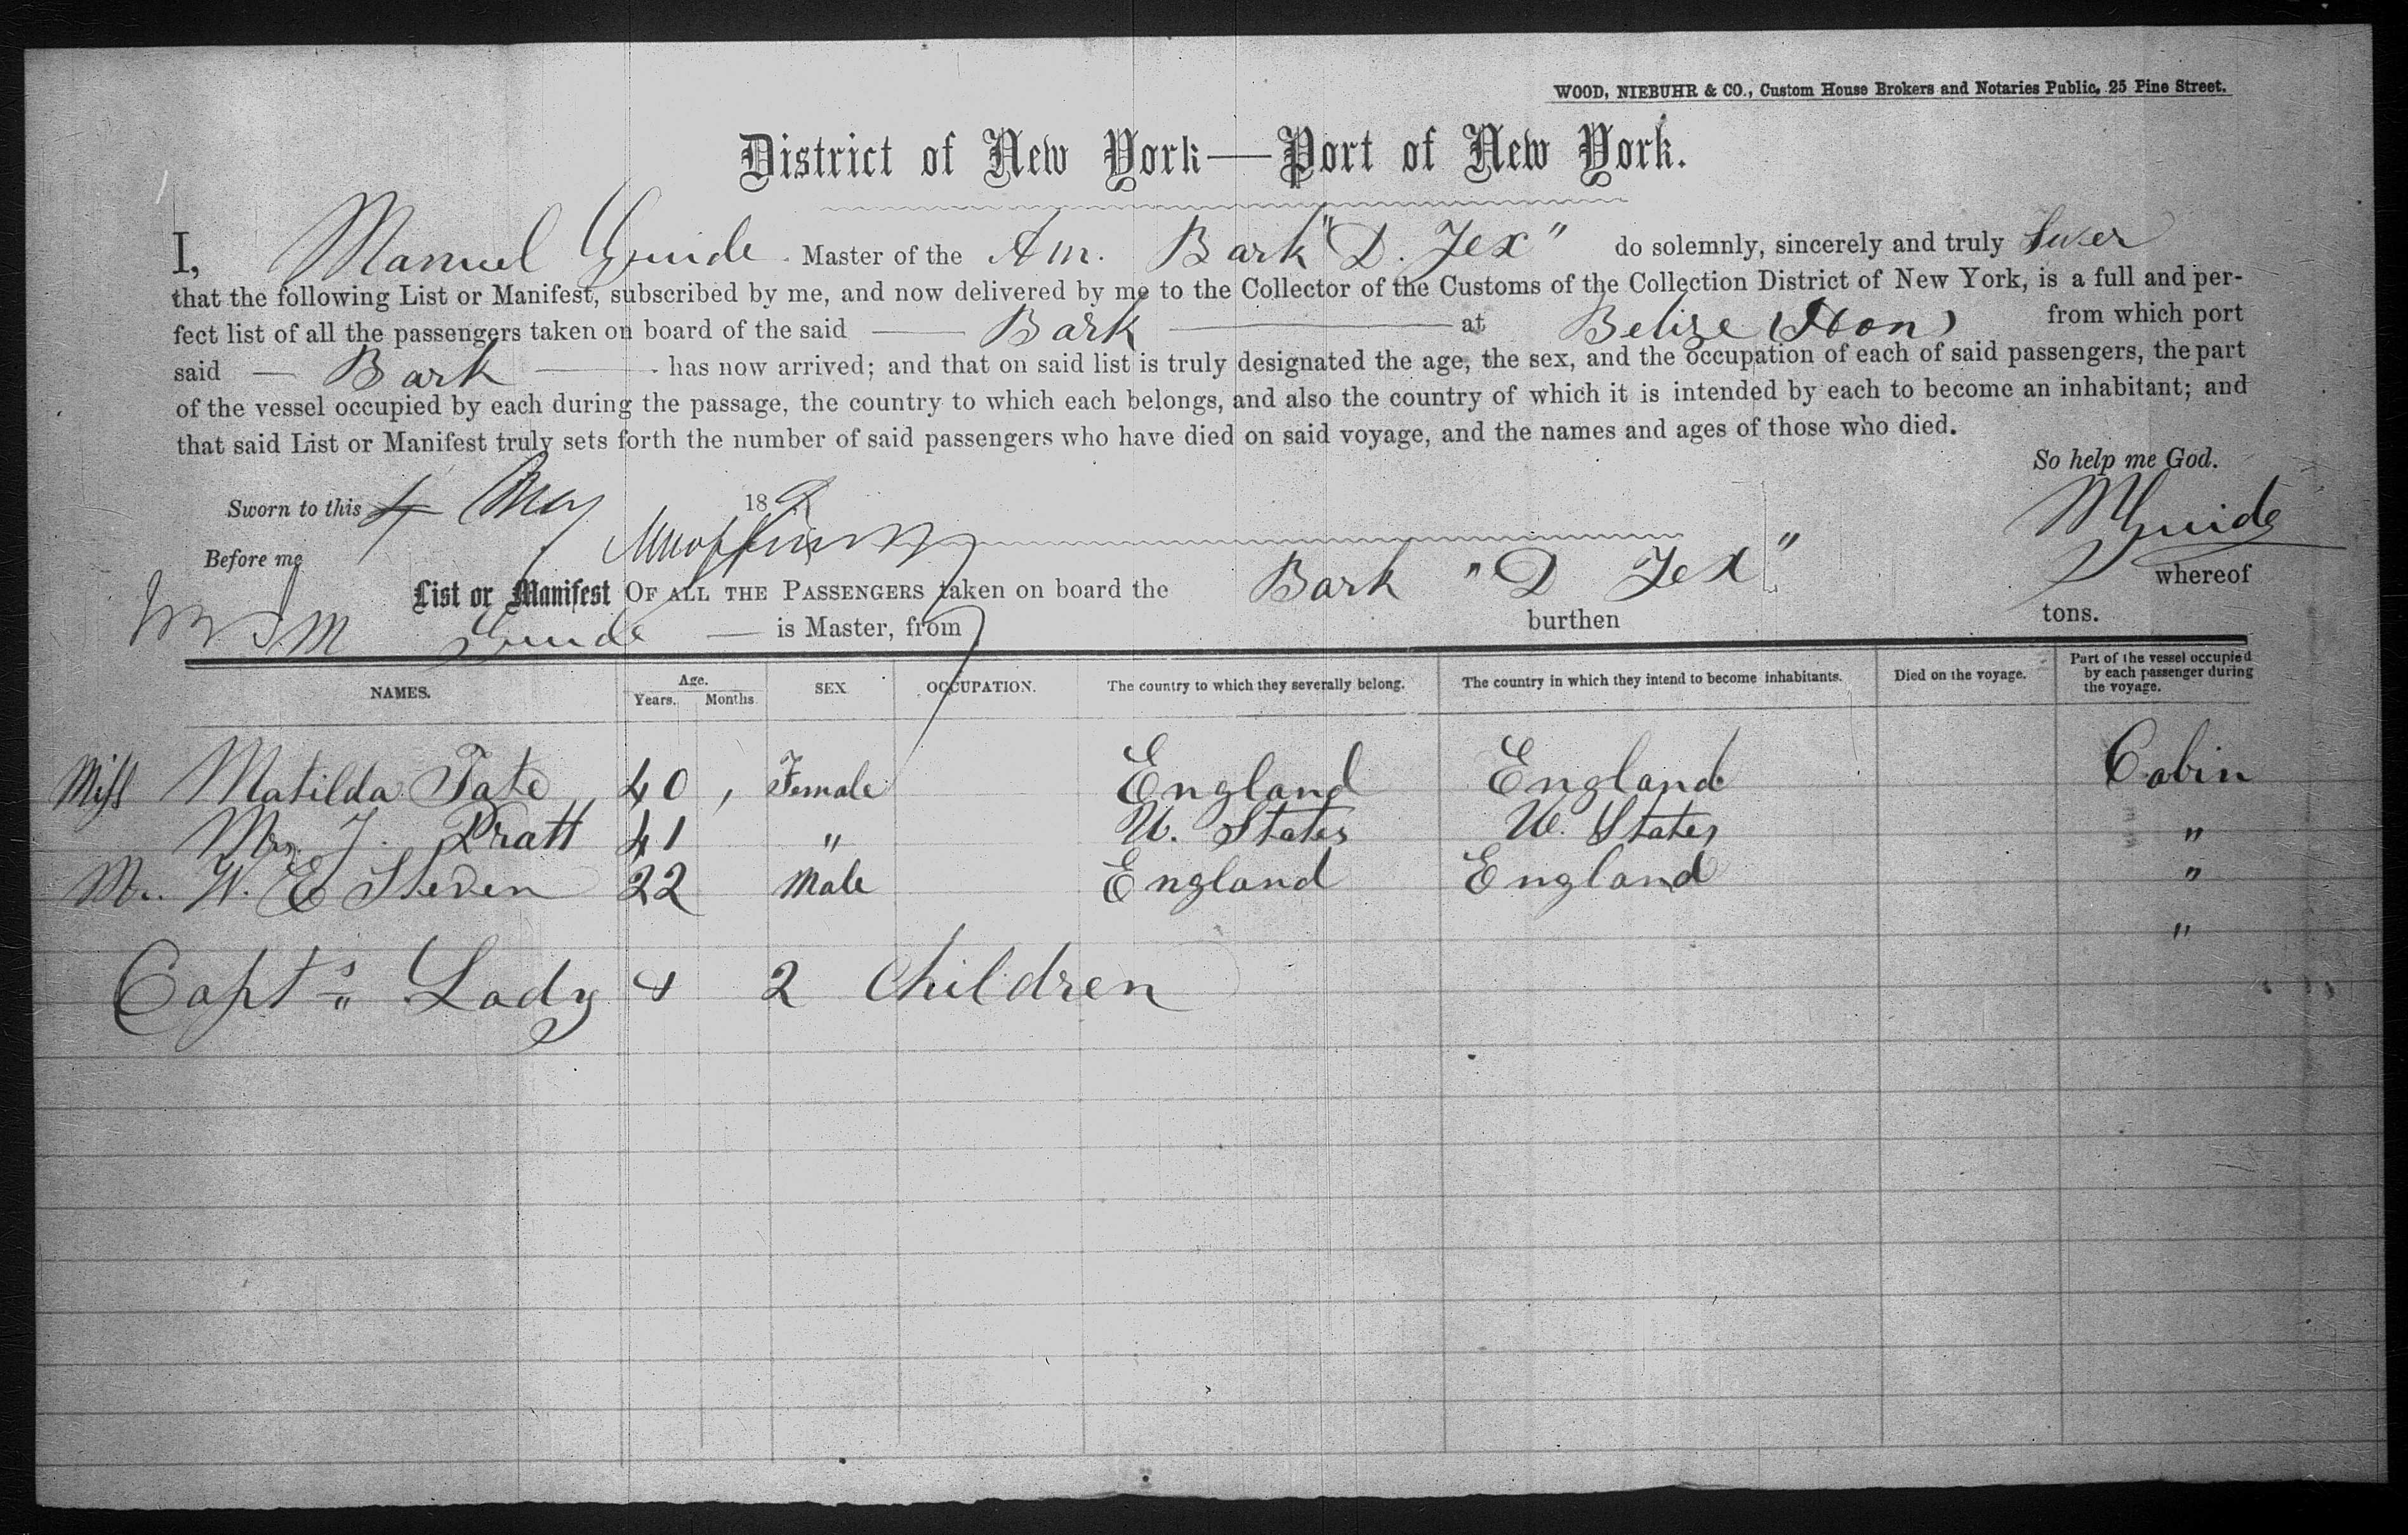 WOOD, NIEBUHR & CO., Custom House Brokers and Notaries Public, 25 Pine Street.
District of New York—Port of New York.
I, Manuel Guide Master of the Am. Bark "D. Jex" do solemnly, sincerely and truly Swear
that the following List or Manifest, subscribed by me, and now delivered by me to the Collector of the Customs of the Collection District of New York, is a full and per-
fect list of all the passengers taken on board of the said — Bark — at Belize (Hon) from which port
said — Bark — has now arrived; and that on said list is truly designated the age, the sex, and the occupation of each of said passengers, the part
of the vessel occupied by each during the passage, the country to which each belongs, and also the country of which it is intended by each to become an inhabitant; and
that said List or Manifest truly sets forth the number of said passengers who have died on said voyage, and the names and ages of those who died.
So help me God.
Sworn to this 4 May 18
M Guide
Before me
List or Manifest OF ALL THE PASSENGERS taken on board the Bark "D Jex" whereof
M Guide — is Master, from burthen tons.
NAMES. Age. Years. Months. SEX. OCCUPATION. The country to which they severally belong. The country in which they intend to become inhabitants. Died on the voyage. Part of the vessel occupied by each passenger during the voyage.
Miss Matilda Tate 40 , Female England England Cabin
Mrs J. Pratt 41 " U. States U. States "
Mr. W. E Steven 22 Male England England "
"
Capt's Lady & 2 Children